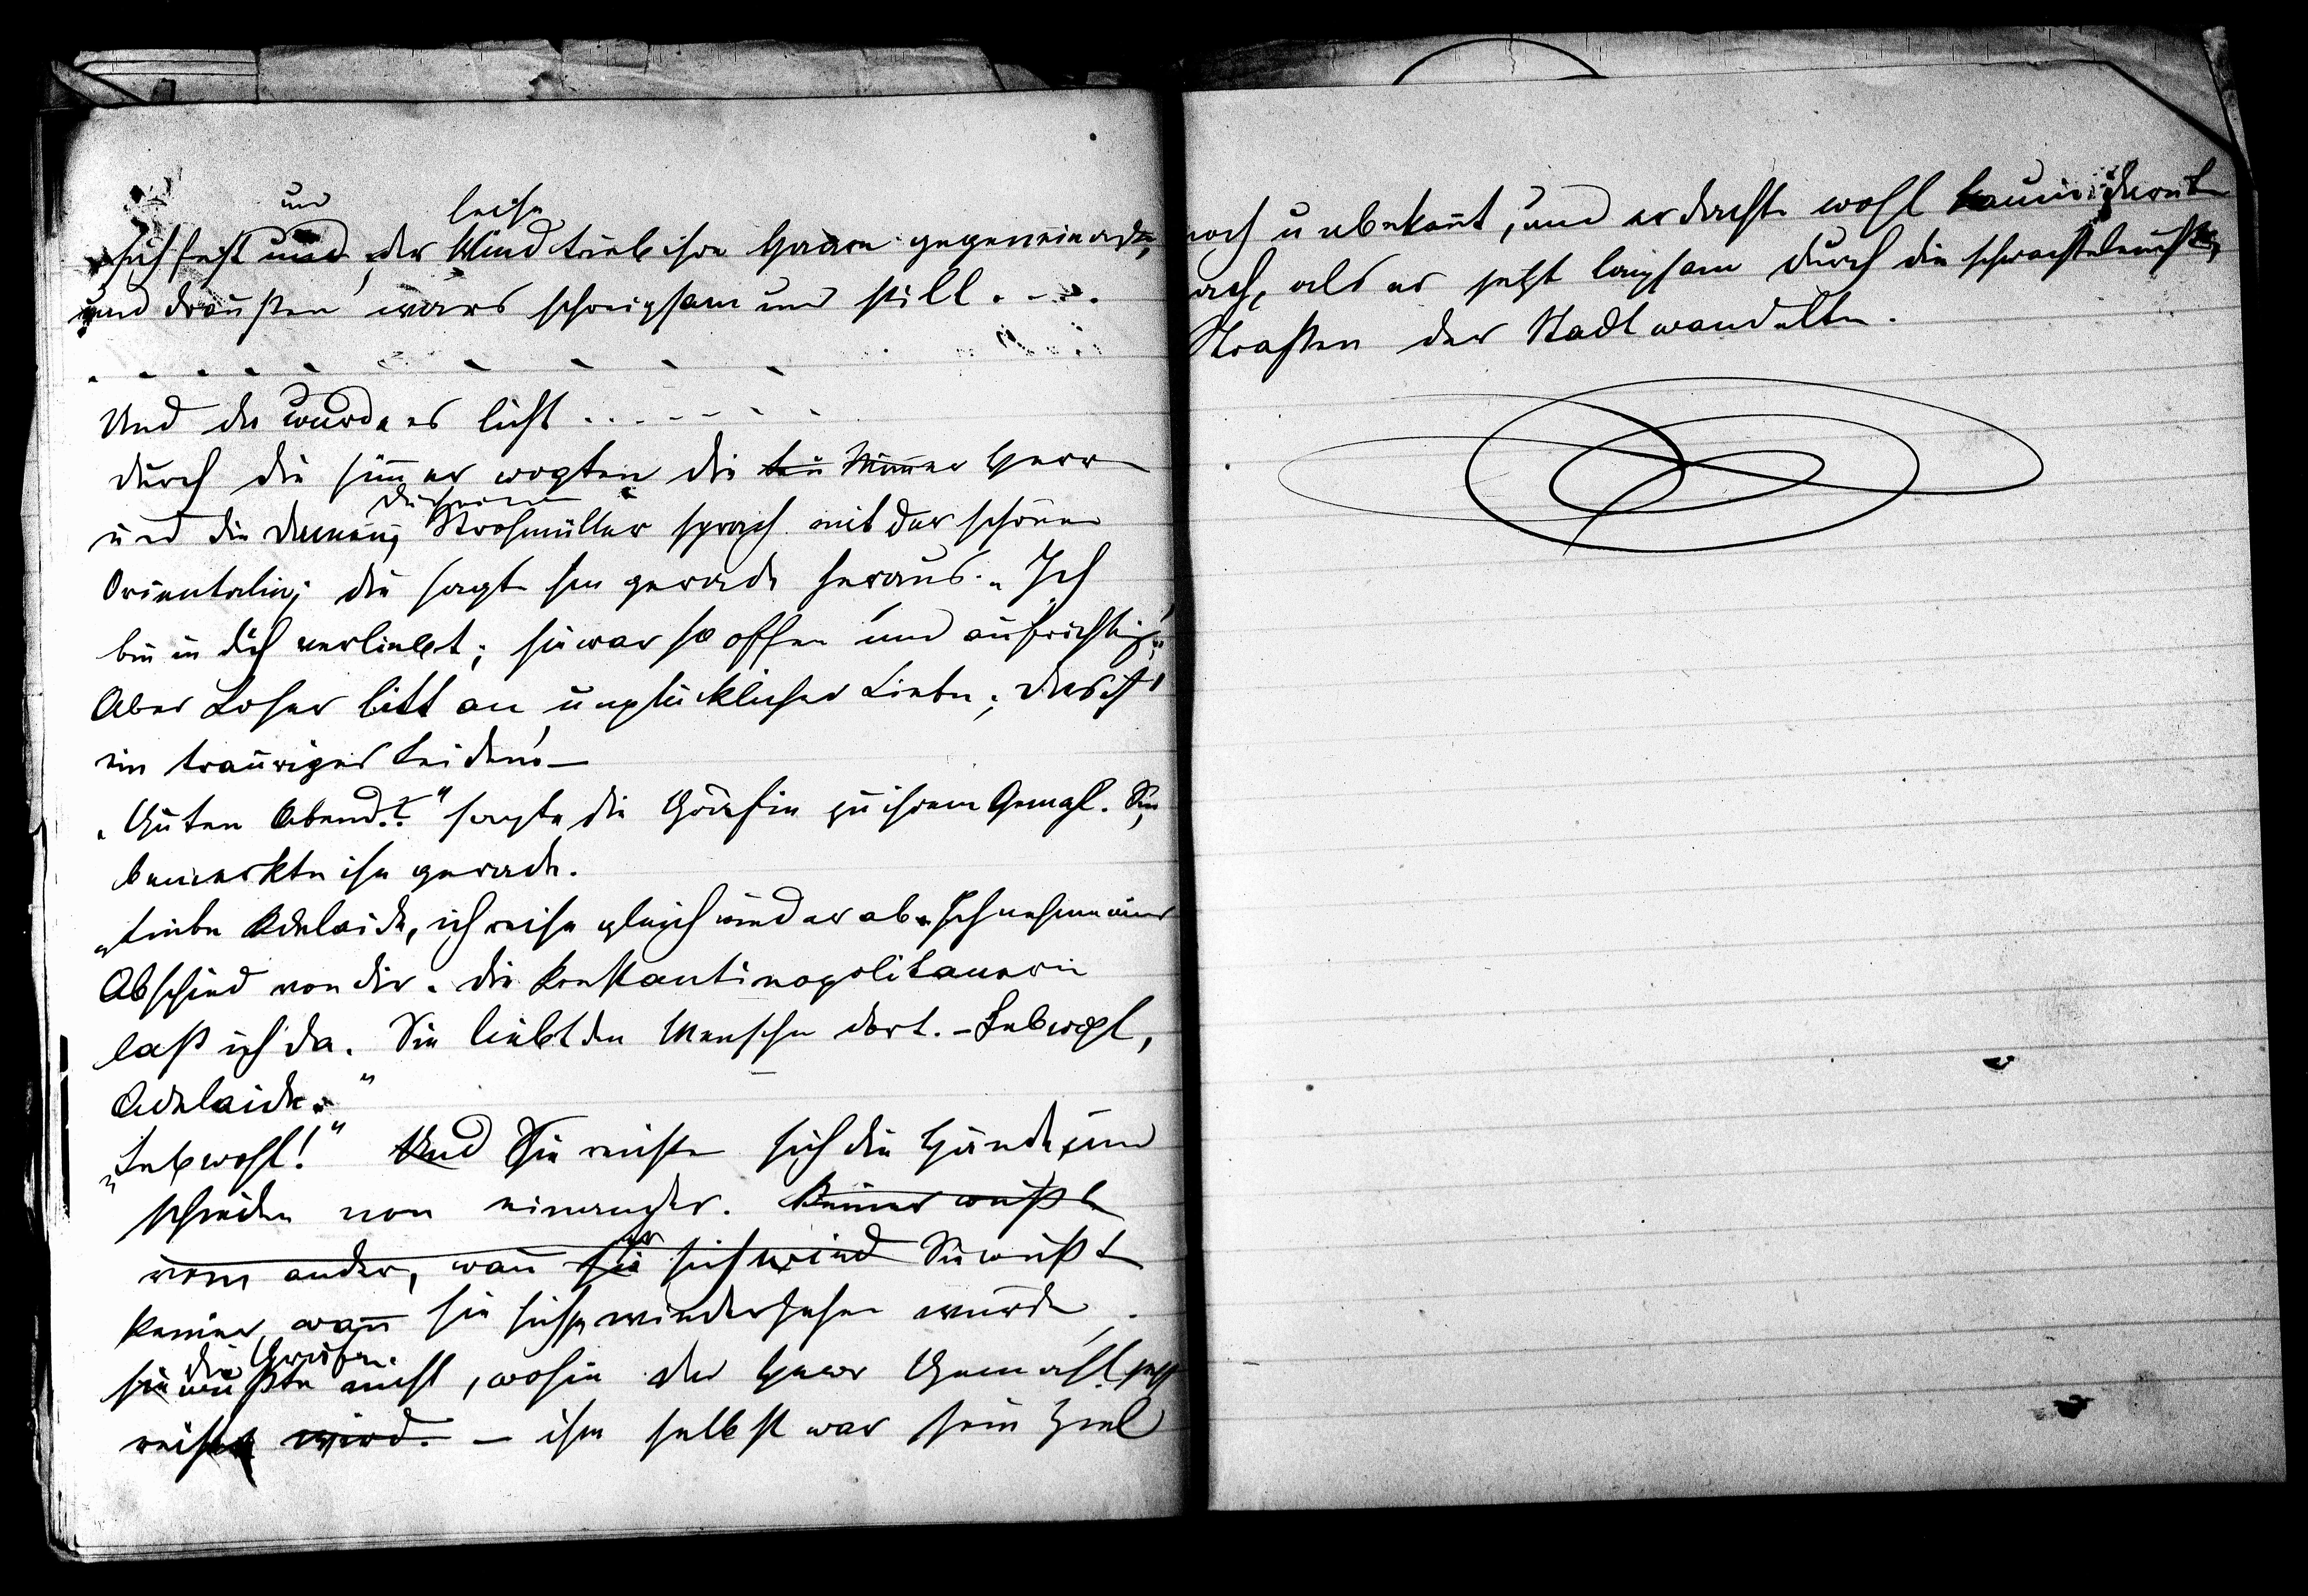 und leise
sich fest und der Wind trieb ihre Haare gegeneinander,
und draußen wars schweigsam und still . - - .
. . . . . . . . .
Und da wurde es licht . . . - - - - -
durch die Zimmer wogten die Herrn
und die Damen; Strohmüller sprach mit der schönen
Orientalin; die sagt ihm gerade heraus: „Ich
bin in dich verliebt; sie war so offen und aufrichtig!"
Aber Loser litt an unglücklicher Liebe; das ist
ein trauriges Leiden! –
„Guten Abend!" sagte die Gräfin zu ihrem Gemahl. Sie
bemerkte ihn gerade.
„Liebe Adelaide, ich reise gleich wieder ab. Ich nehme nur
Abschied von dir. Die Konstantinopolitanerin
laß ich da. Sie liebt den Menschen dort. – Lebwohl,
Adelaide."
„Lebwohl!" Und Sie reichten sich die Hände, und
schieden von einander. Keiner wußte
vom andern, wann sie sich wied Sie wußte
keiner, wann sie sich wiedersehen würde
die Gräfin
sie wußte nicht, wohin der Herr Gemahl jetzt
reist wird. – ihm selbst war sein Ziel
noch unbekannt, und er dachte wohl kaum darüber
nach, als er jetzt langsam durch die schwachbeleuchteten
Straßen der Stadt wandelte.